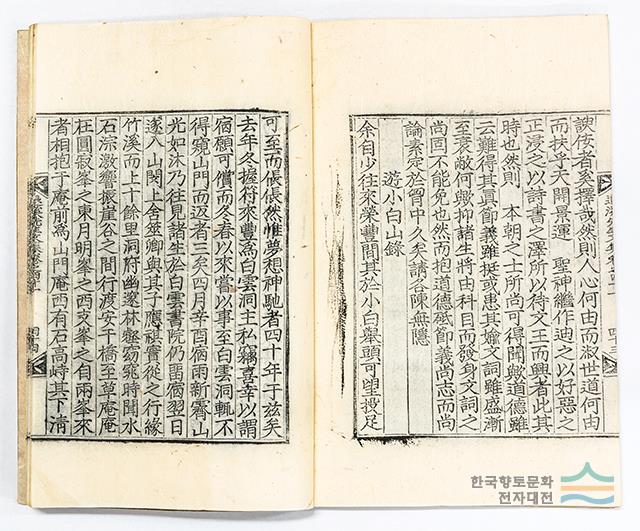 諛佞者奚擇哉然則人心何由而淑世道何由
而扶乎天開景運 聖神繼作迪之以好惡之
正浸之以詩書之澤所以待文王而興者此其
時也然則 本朝之士所尚可得聞歟道德雖
云難得其眞節義雖挺或患其媮文詞雖盛漸
至衰敝何歟抑諸生將由科目而發身文詞之
尚固不能免也然而抱道德砥節義尚志而尚
論素定於胷中久矣請各陳無隱
遊小白山錄
余自少往來榮豐間其於小白擧頭可望投足
可至而倀倀然惟夢想神馳者四十年于玆矣
去年冬握符來豐爲白雲洞主私竊喜幸以謂
宿願可償而冬春以來嘗以事至白雲洞輒不
得窺山門而返者三矣四月辛酉宿雨新霽山
光如沐乃往見諸生於白雲書院仍留宿翌日
遂入山閔上舍筮卿與其子應祺實從之行緣
竹溪而上十餘里洞府幽邃林壑窈窕時聞水
石淙激響振崖谷之間行渡安干橋至草庵庵
在圓寂峯之東月明峯之西支峯之自兩峯來
者相抱于庵前爲山門庵西有石高峙其下淸
한국향토문화
전자대전